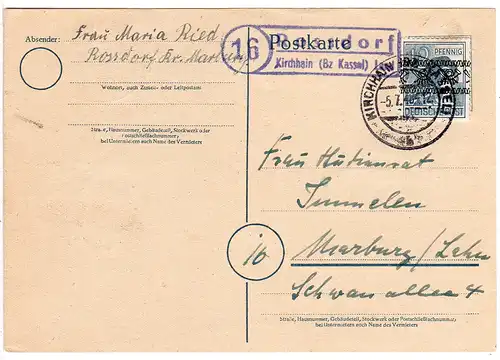 Absender:
Frau Maria Ried
Rossdorf Kr. Marburg
Wohnort, auch Zustell- oder Leitpostamt
Straße, Hausnummer, Gebäudeteil, Stockwerk oder
Postschließfachnummer;
bei Untermietern auch Name des Vermieters
16
Rossdorf
Kirchhain (Bz Kassel) Land
Postkarte
PFENNIG
KIRCHHAIN
-5.7.48
b
DEUTSCHE POST
Frau
Marburg/Lahn
16
Schwanallee 4
Straße, Hausnummer, Gebäudeteil, Stockwerk oder Postschließfachnummer;
bei Untermietern auch Name des Vermieters